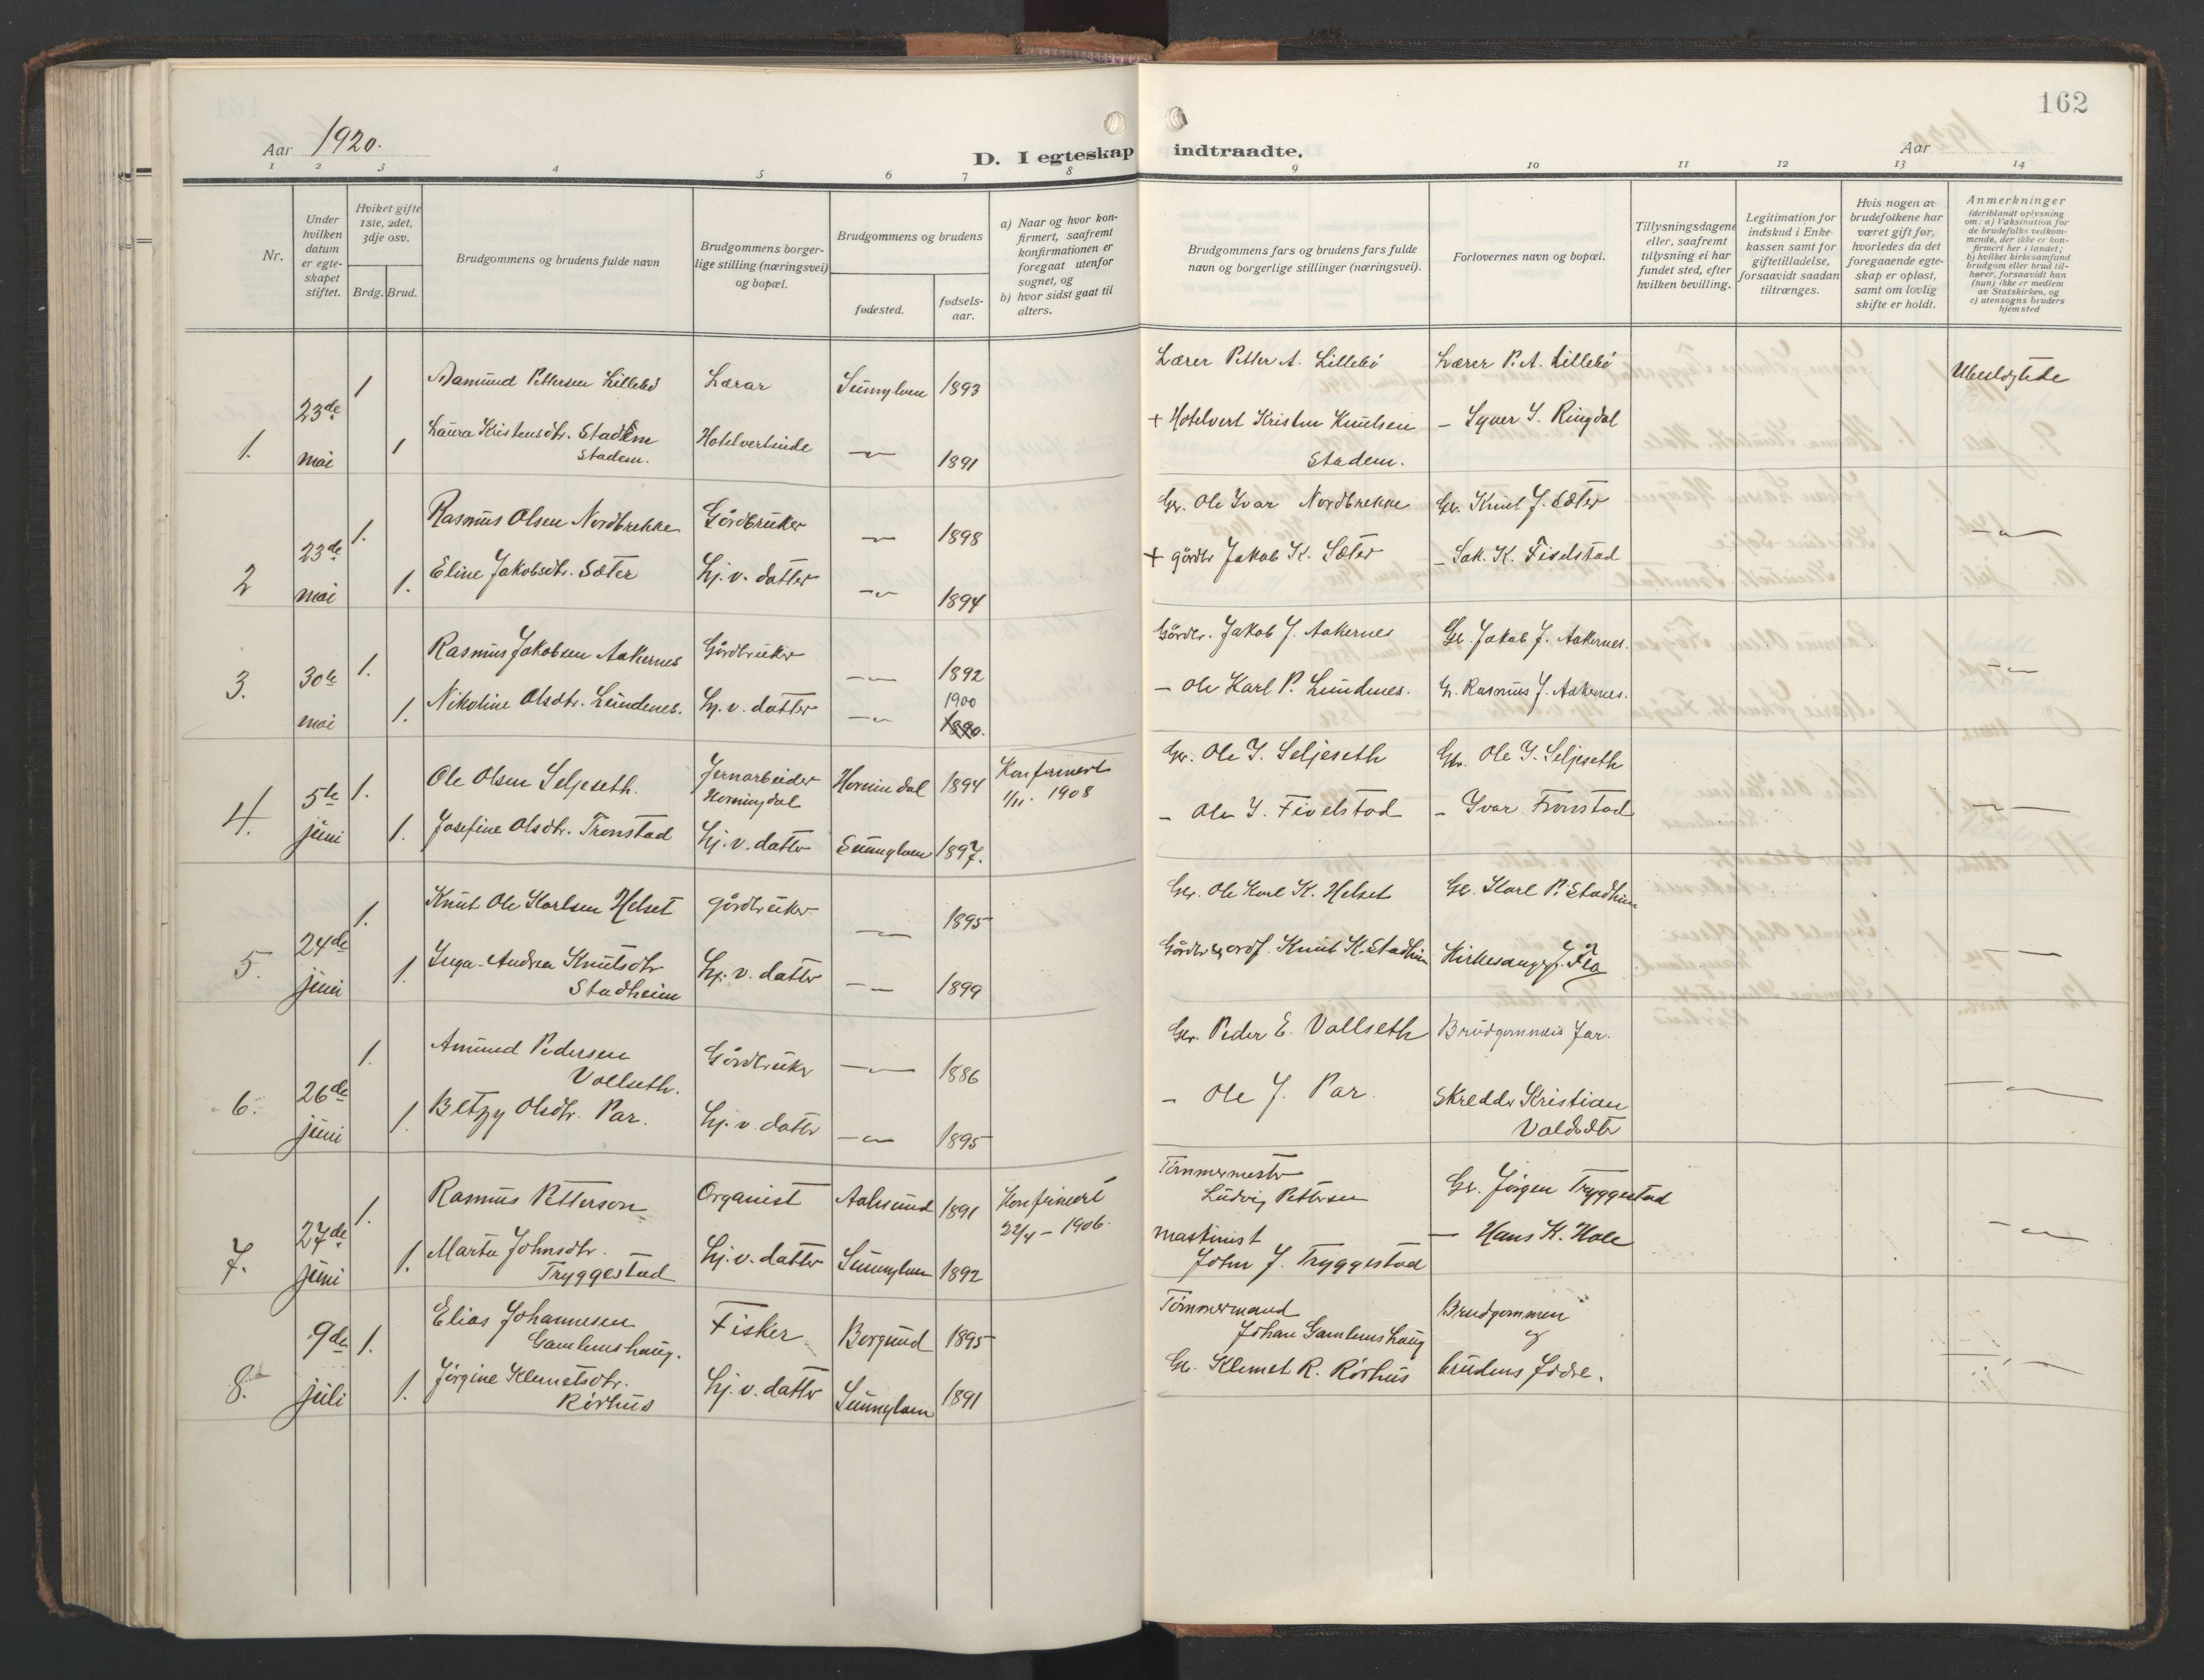 162
Aar 1920.
D. I egteskap indtraadte.
Aar
1 2 3 4 5 6 7 8 9 10 11 12 13 14
Nr.
Under hvilken datum er egteskapet stiftet.
Hviket gifte 1ste, 2det, 3dje osv.
Brdg. Brud.
Brudgommens og brudens fulde navn
Brudgommens borgerlige stilling (næringsvei) og bopæl.
Brudgommens og brudens
fødested.
fødsels-aar.
a) Naar og hvor konfirmert, saafremt konfirmationen er foregaat utenfor sognet, og
b) hvor sidst gaat til alters.
Brudgommens fars og brudens fars fulde navn og borgerlige stillinger (næringsvei).
Forlovernes navn og bopæl.
Tillysningsdagene eller, saafremt tillysning ei har fundet sted, efter hvilken bevilling.
Legitimation for indskud i Enkekassen samt for giftetilladelse, forsaavidt saadan tiltrænges.
Hvis nogen av brudefolkene har været gift før, hvorledes da det foregaaende egteskap er opløst, samt om lovlig skifte er holdt.
Anmerkninger
(deriblandt oplysning om: a) Vaksination for de brudefolks vedkommende, der ikke er konfirmert her i landet; b) hvilket kirkesamfund brudgom eller brud tilhører, forsaavidt han (hun) ikke er medlem av Statskirken, og c) utensogns bruders hjemsted
1. 23de mai
1 Aamund Pettersen Lillebø Lærar Sunnylven 1893 Lærer Petter A. Lillebø Lærer P. A. Lillebø Ubeslegtede
1 Laura Kristensdtr. Stadem Hotelvertinde — 1891 + Hotelvert Kristen Knutsen — Syver S. Ringdal
Stadem. Stadem.
2 23de mai
1. Rasmus Olsen Nordbrekke Gårdbruker — 1898 Gr. Ole Ivar Nordbrekke Gr. Knut J. Sæter —
1. Eline Jakobsdtr. Sæter hj. v. datter — 1894 + gårdbr Jakob K. Sæter — Sak. K. Fivelstad
3. 30te mai
1. Rasmus Jakobsen Aakernes Gårdbruker — 1892 Gårdbr. Jakob J. Aakernes Gr. Jakob J. Aakernes. —
1. Nikoline Olsdtr. Lundenes. hj. v. datter — 1900 1890. — Ole Karl P. Lundenes. Gr. Rasmus J. Aakernes.
4. 5te juni
1. Ole Olsen Seljeseth. Jernarbeider Hornindal 1894 Konfirmert Gr. Ole I. Seljeseth Gbr. Ole I. Seljeseth —
Horningdal 1/11. 1908
1. Josefine Olsdtr. Tronstad hj. v. datter Sunnylven 1897. — Ole I. Fivelstad — Ivar Tronstad
5. 24de juni
1. Knut Ole Karlsen Helset gårdbruker — 1895 Gr. Ole Karl K. Helset Gr. Karl P. Stadheim
1. Inga-Andrea Knutsdtr hj. v. datter — 1899 Gårdbr og ordf. Knut K. Stadheim Kirkesanger J. Flo —
Stadheim
6. 26de juni
1. Amund Pedersen Gårdbruker — 1886 Gr. Peder E. Vollseth Brudgommens far. —
Vollseth.
1. Betzy Olsdtr. Par. hj. v. datter — 1895 — Ole J. Par. Skredder Kristian
Voldsæter
7. 27de juni
1. Rasmus Petterson Organist Aalesund 1891 Konfirmert Tømmermester Gr. Jørgen Tryggestad
22/4 – 1906. Ludvig Pettersen
1. Marta Johnsdtr. hj. v. datter Sunnylven 1892 maskinist — Hans K. Hole —
Tryggestad John J. Tryggestad
8. 9de juli
1. Elias Johannesen Fisker Borgund 1895 Tømmermand Brudgommen
Gamlemshaug. Johan Gamlemshaug og
1. Jørgine Klemetsdtr. hj. v. datter Sunnylven 1891 Gr. Klemet R. Rørhus brudens fedre. —
Rørhus